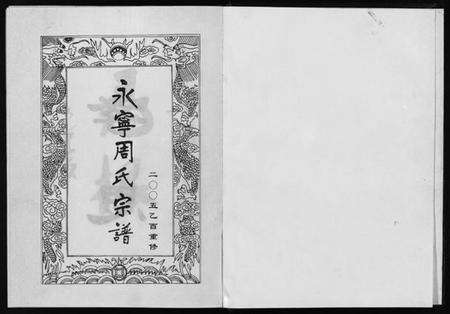 永寧周氏宗譜
二〇〇五乙酉重修